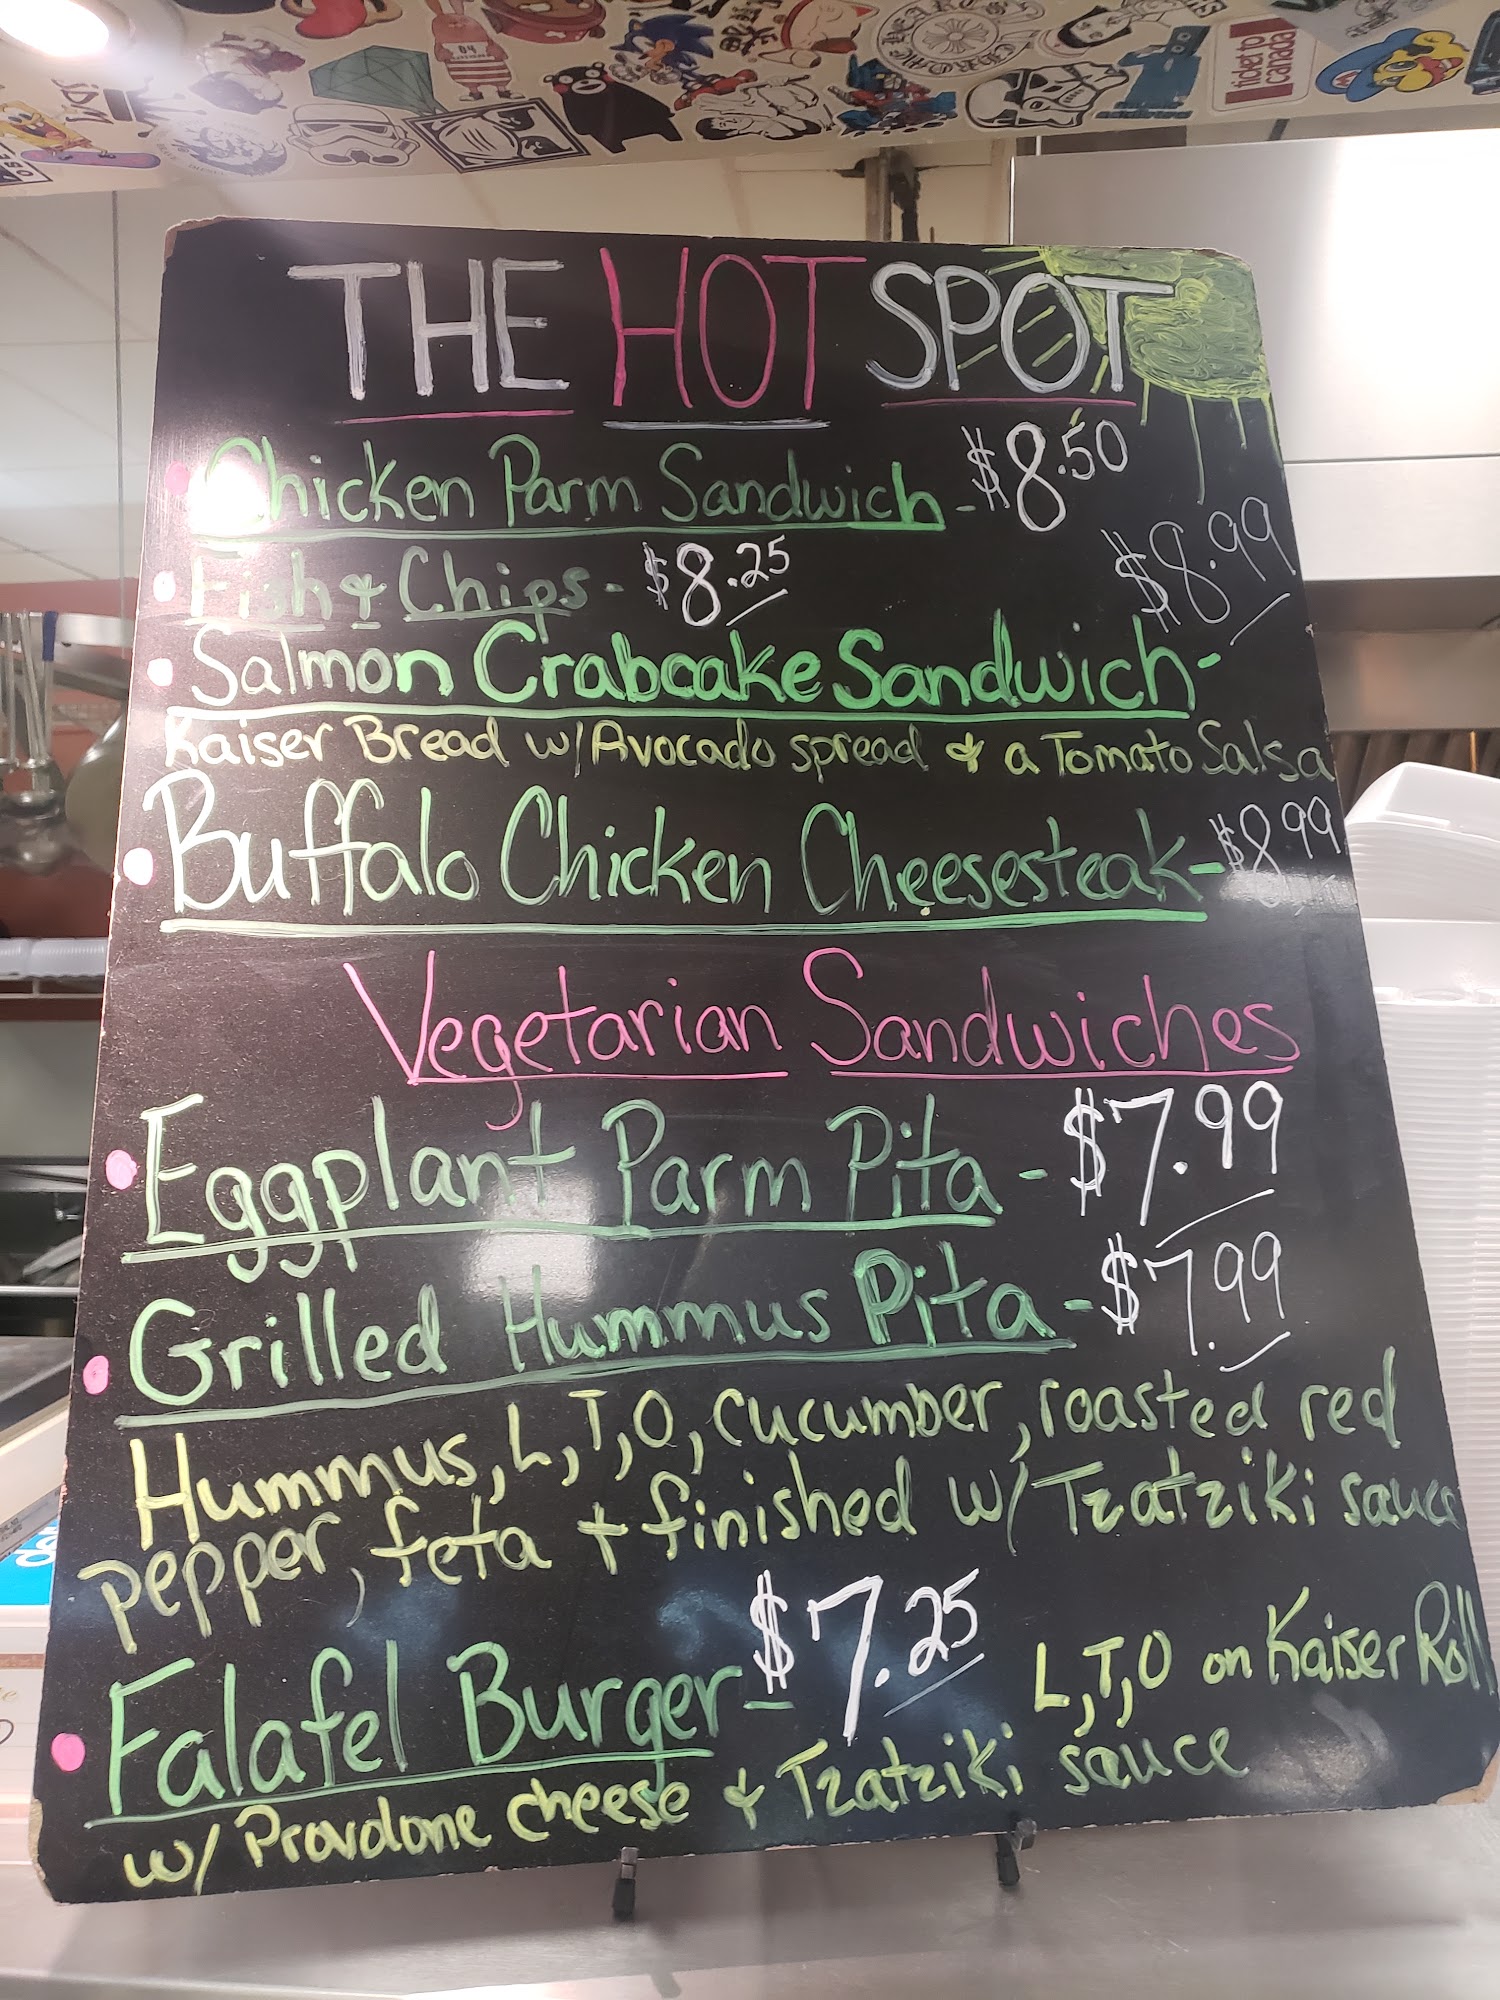 THE HOT SPOT
Chicken Parm Sandwich - $8.50
Fish & Chips - $8.25
Salmon Crabcake Sandwich - $8.99
Kaiser Bread w/ Avocado spread & a Tomato Salsa
Buffalo Chicken Cheesesteak - $8.99
Vegetarian Sandwiches
Eggplant Parm Pita - $7.99
Grilled Hummus Pita - $7.99
Hummus, L, T, O, cucumber, roasted red
pepper, feta + finished w/ Tzatziki sauce
Falafel Burger - $7.25 L, T, O on Kaiser Roll
w/ Provolone cheese & Tzatziki sauce
ticket to
canada